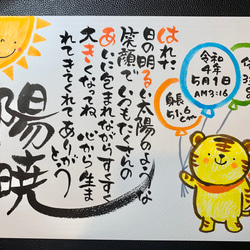 はれた
日の明るい太陽のような
笑顔でいつもたくさんの
あいに包まれながらすくすく
大きくなってね 心から生ま
れてきてくれてありがとう
陽暁
令和
4年
5月1日
AM3:16
身長
51.6cm